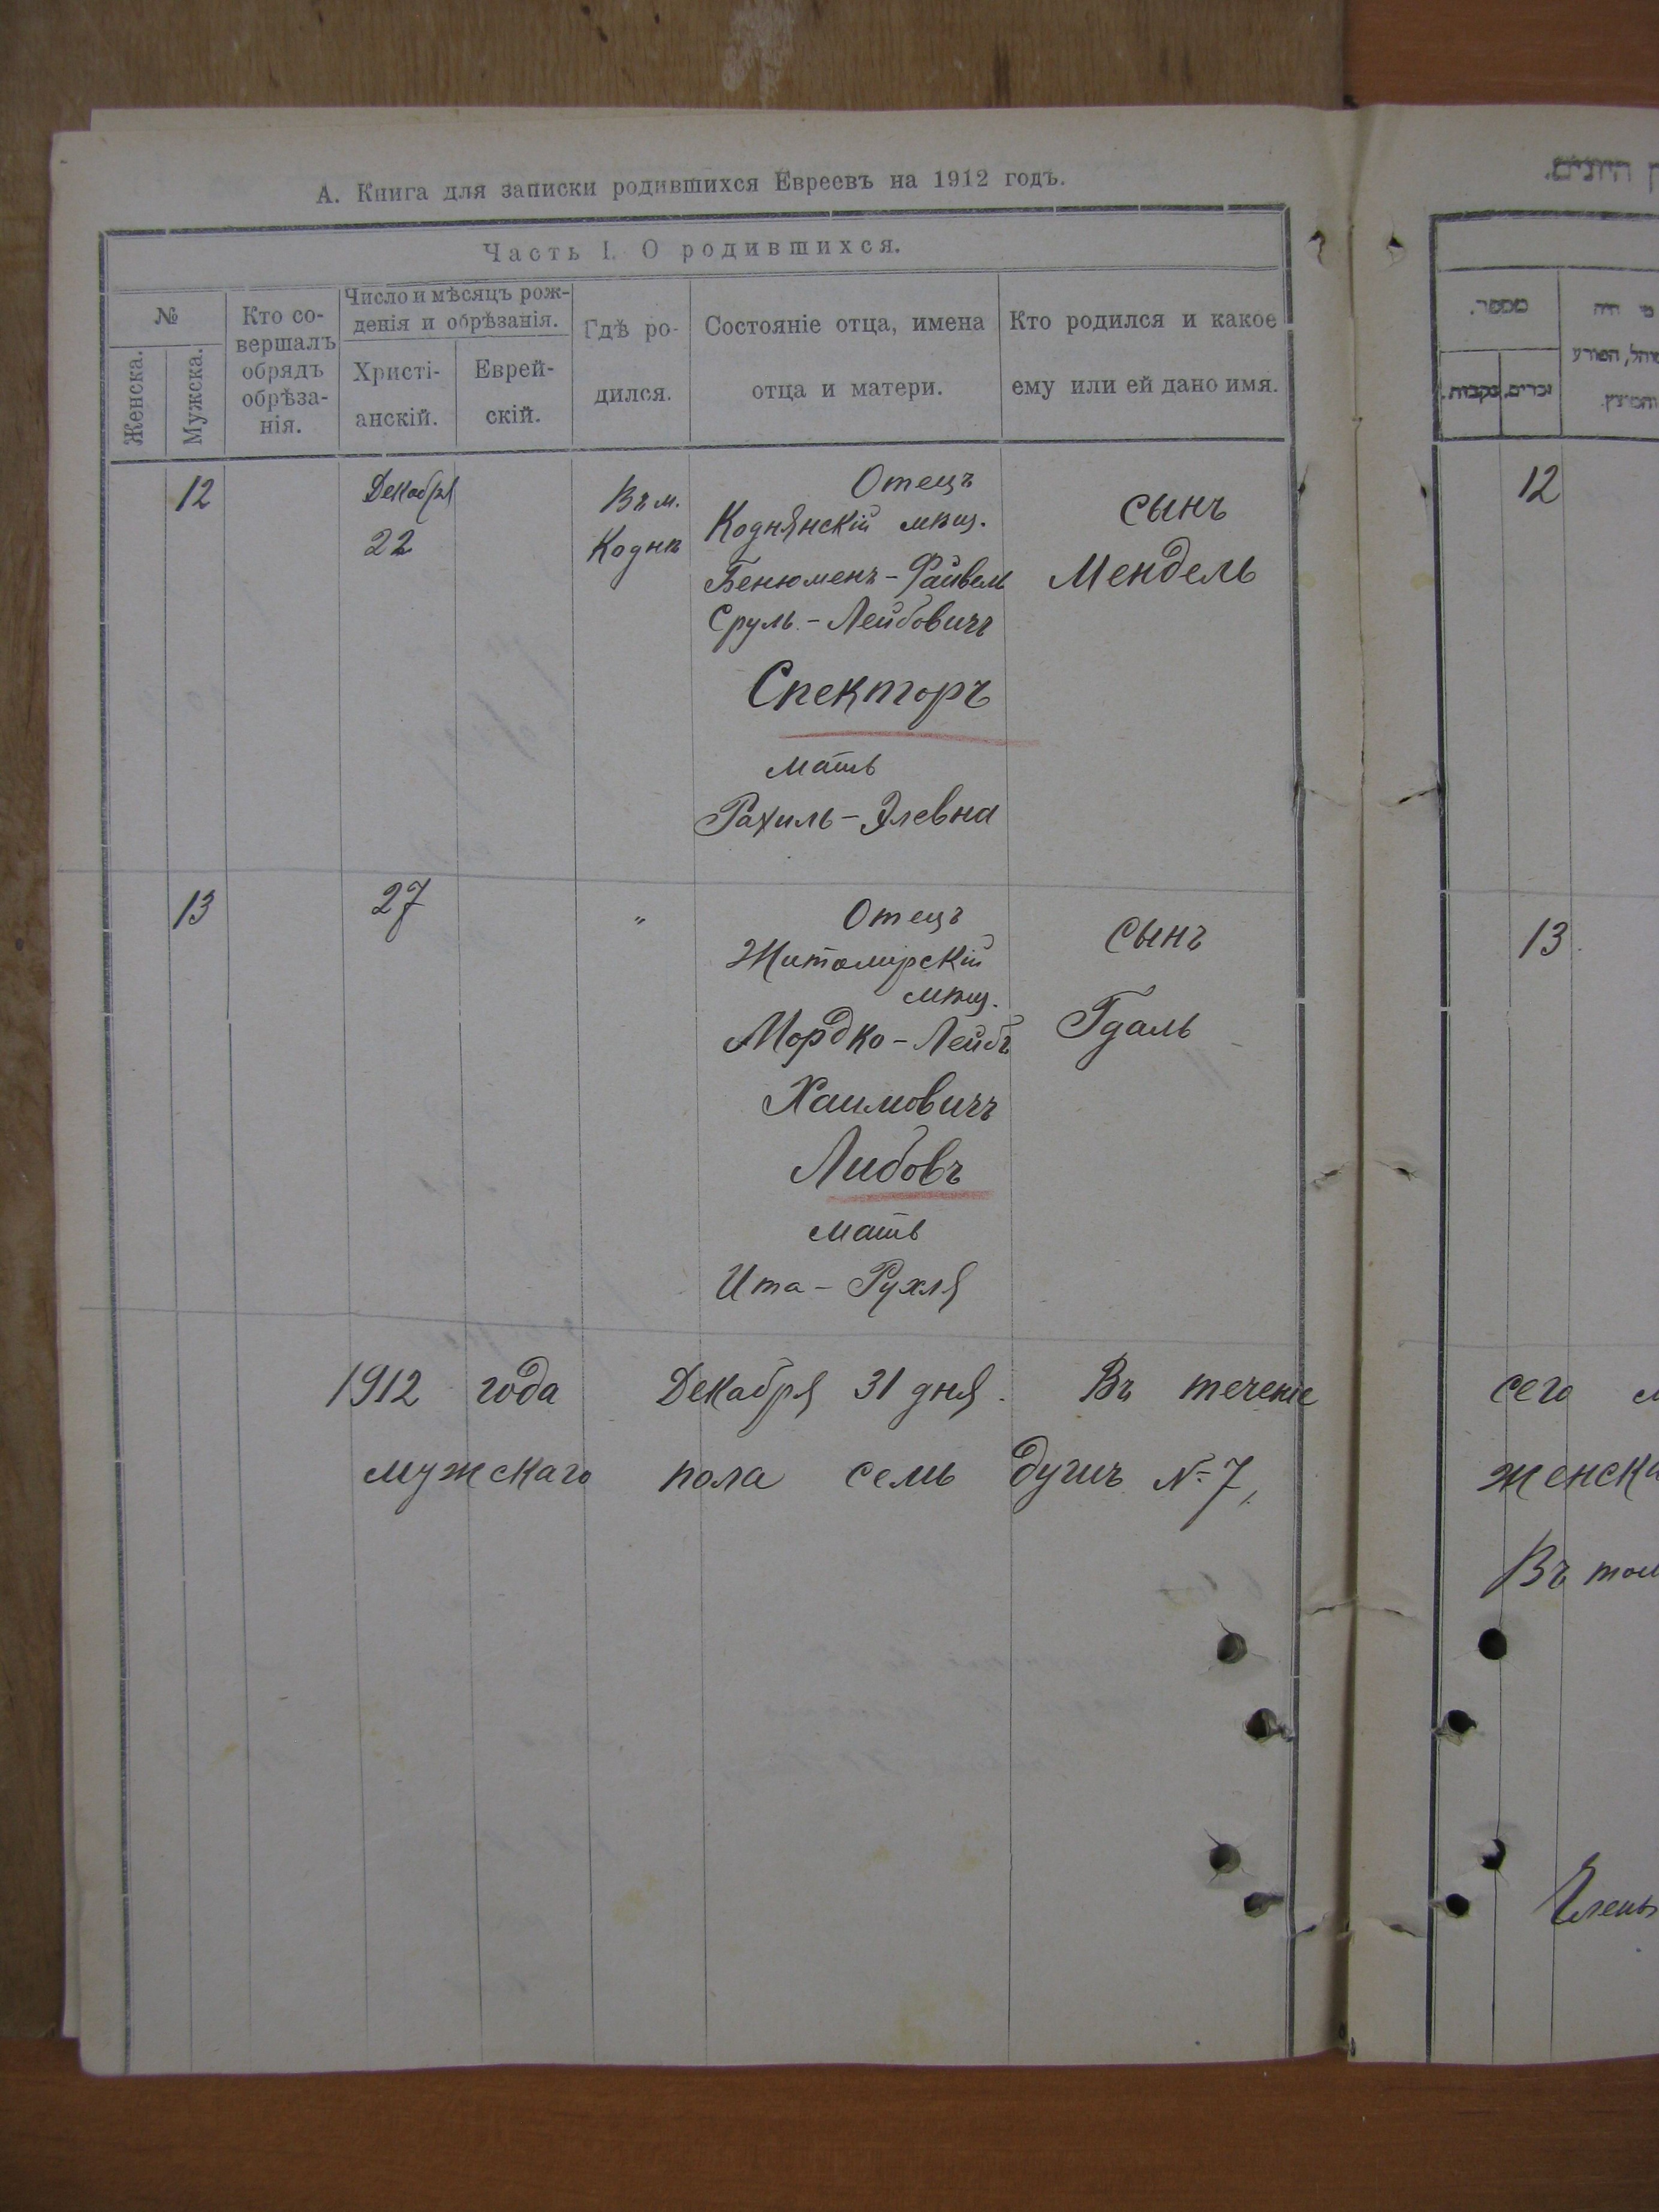 А. Книга для записки родившихся Евреевъ на 1912 годъ.
Часть I. О родившихся.
№
Женска.
Мужска.
Кто со-
вершалъ
обрядъ
обрѣза-
нія.
Число и мѣсяцъ рож-
денія и обрѣзанія.
Христі-
анскій.
Еврей-
скій.
Гдѣ ро-
дился.
Состояніе отца, имена
отца и матери.
Кто родился и какое
ему или ей дано имя.
12
Декабря
22
Въ м.
Коднѣ
Отецъ
Коднянскій мѣщ.
Бенюменъ-Файвель
Сруль-Лейбовичъ
Спекторъ
мать
Рахиль-Элевна
сынъ
Мендель
13
27
"
Отецъ
Житомирскій
мѣщ.
Мордко-Лейбъ
Хаимовичъ
Либовъ
мать
Ита-Рухля
сынъ
Гдаль
1912 года Декабря 31 дня. Въ теченіе
мужскаго пола семь душъ №7,
מספר.
זכרים.
נקבות.
12
13.
сего
Въ